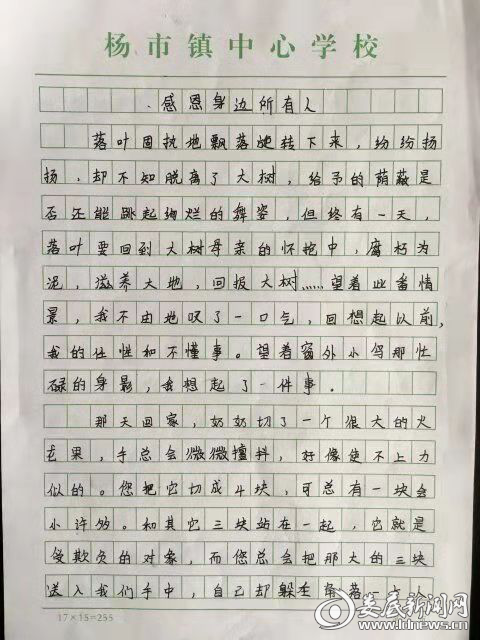 杨市镇中心学校
感恩身边所有人
落叶固执地飘落旋转下来，纷纷扬
扬，却不知脱离了大树，给予的荫蔽是
否还能跳起绚烂的舞姿，但终有一天，
落叶要回到大树母亲的怀抱中，腐朽为
泥，滋养大地，回报大树……望着此番情
景，我不由地叹了一口气，回想起以前，
我的任性和不懂事。望着窗外小鸟那忙
碌的身影，我想起了一件事。
那天回家，奶奶切了一个很大的火
龙果，手总会微微擅抖，好像使不上力
似的。您把它切成4块，可总有一块会
小许多。和其它三块站在一起，它就是
受欺负的对象，而您总会把那大的三块
送入我们手中，自己却躲在角落
17×15=255
娄底新闻网
www.ldnews.cn